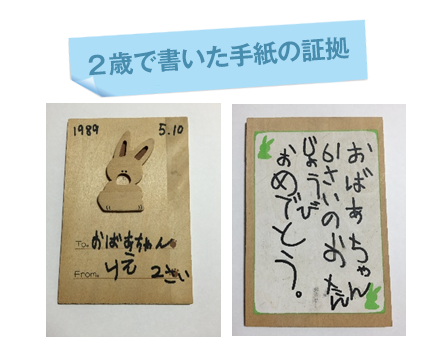 2歳で書いた手紙の証拠
1989 5.10
To. おばあちゃん
From. りえ 2さい
おばあちゃん
61さいのおたん
じょうび
おめでとう。